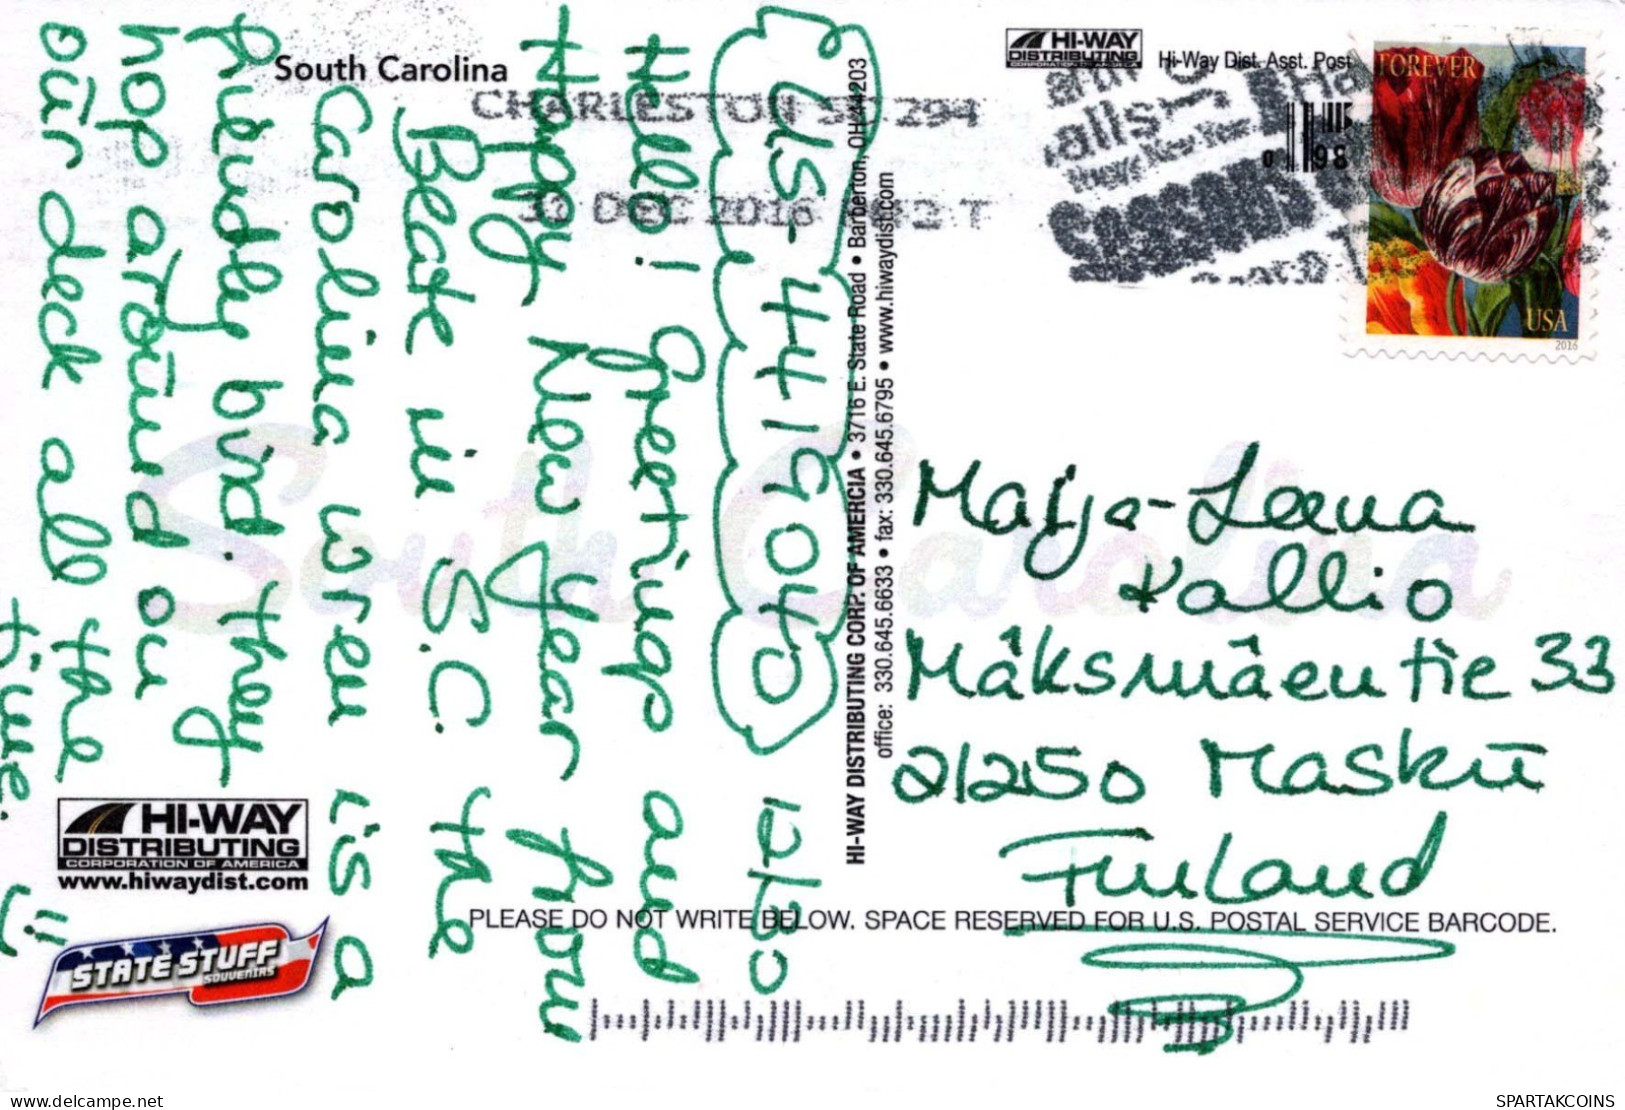 South Carolina
HI-WAY
DISTRIBUTING
CORPORATION OF AMERICA
Hi-Way Dist. Asst. Post
CHARLESTON SC 294
31 DEC 2016
FOREVER
USA
2016
US-4419040 12/30
Hello! Greetings and
Happy New Year from
Beate in S.C. the
Carolina wren is a
friendly bird. they
hop around on
our deck all the
time.
HI-WAY DISTRIBUTING CORP. OF AMERCIA • 3716 E. State Road • Barberton, OH 44203
office: 330.645.6633 • fax: 330.645.6795 • www.hiwaydist.com
South Carolina
Maija-Leena
Kallio
Mâksmâentie 33
21250 Masku
Finland
HI-WAY
DISTRIBUTING
CORPORATION OF AMERICA
www.hiwaydist.com
STATE STUFF
SOUVENIRS
PLEASE DO NOT WRITE BELOW. SPACE RESERVED FOR U.S. POSTAL SERVICE BARCODE.
https://www.delcampe.net
SPARTAKCOINS